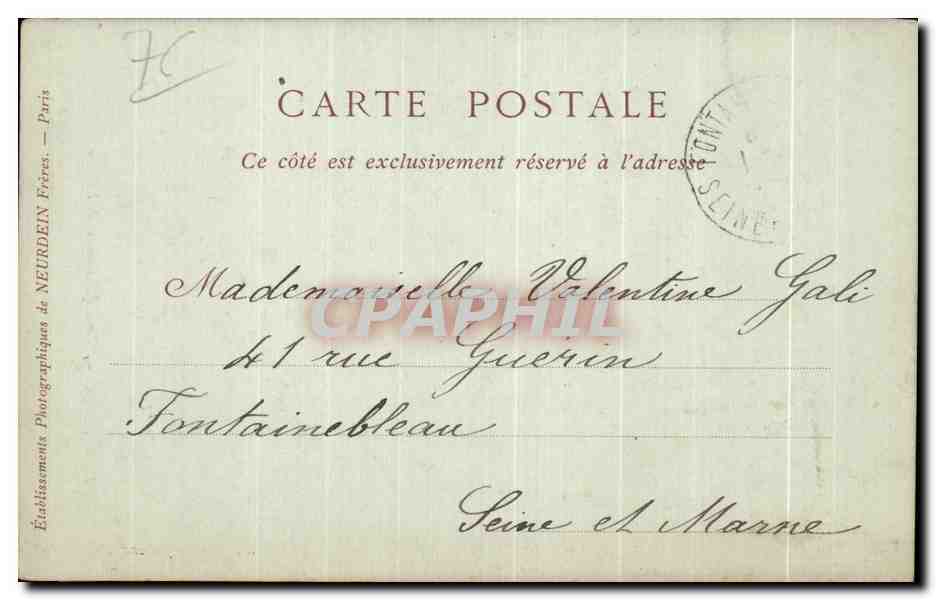 CARTE POSTALE
Ce côté est exclusivement réservé à l'adresse
FONTAI
SEINE
Mademoiselle Valentine Gali
41 rue Guérin
Fontainebleau
Seine et Marne
Établissements Photographiques de NEURDEIN Frères. — Paris
CPAPHIL